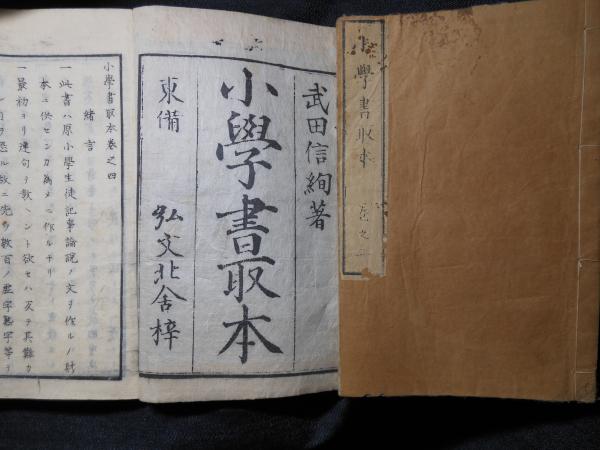 小學書取本
武田信絢著
小學書取本
東備
弘文北舎梓
小學書取本巻之四
緒言
一此書ハ原小學生徒記事論説ノ文ヲ作ルノ
本ニ供センカ為メニ作ルナリ
一最初ヨリ連句ヲ教ヘント欲セハ反テ其難カ
ヲ恐ル故ニ先ツ數百ノ